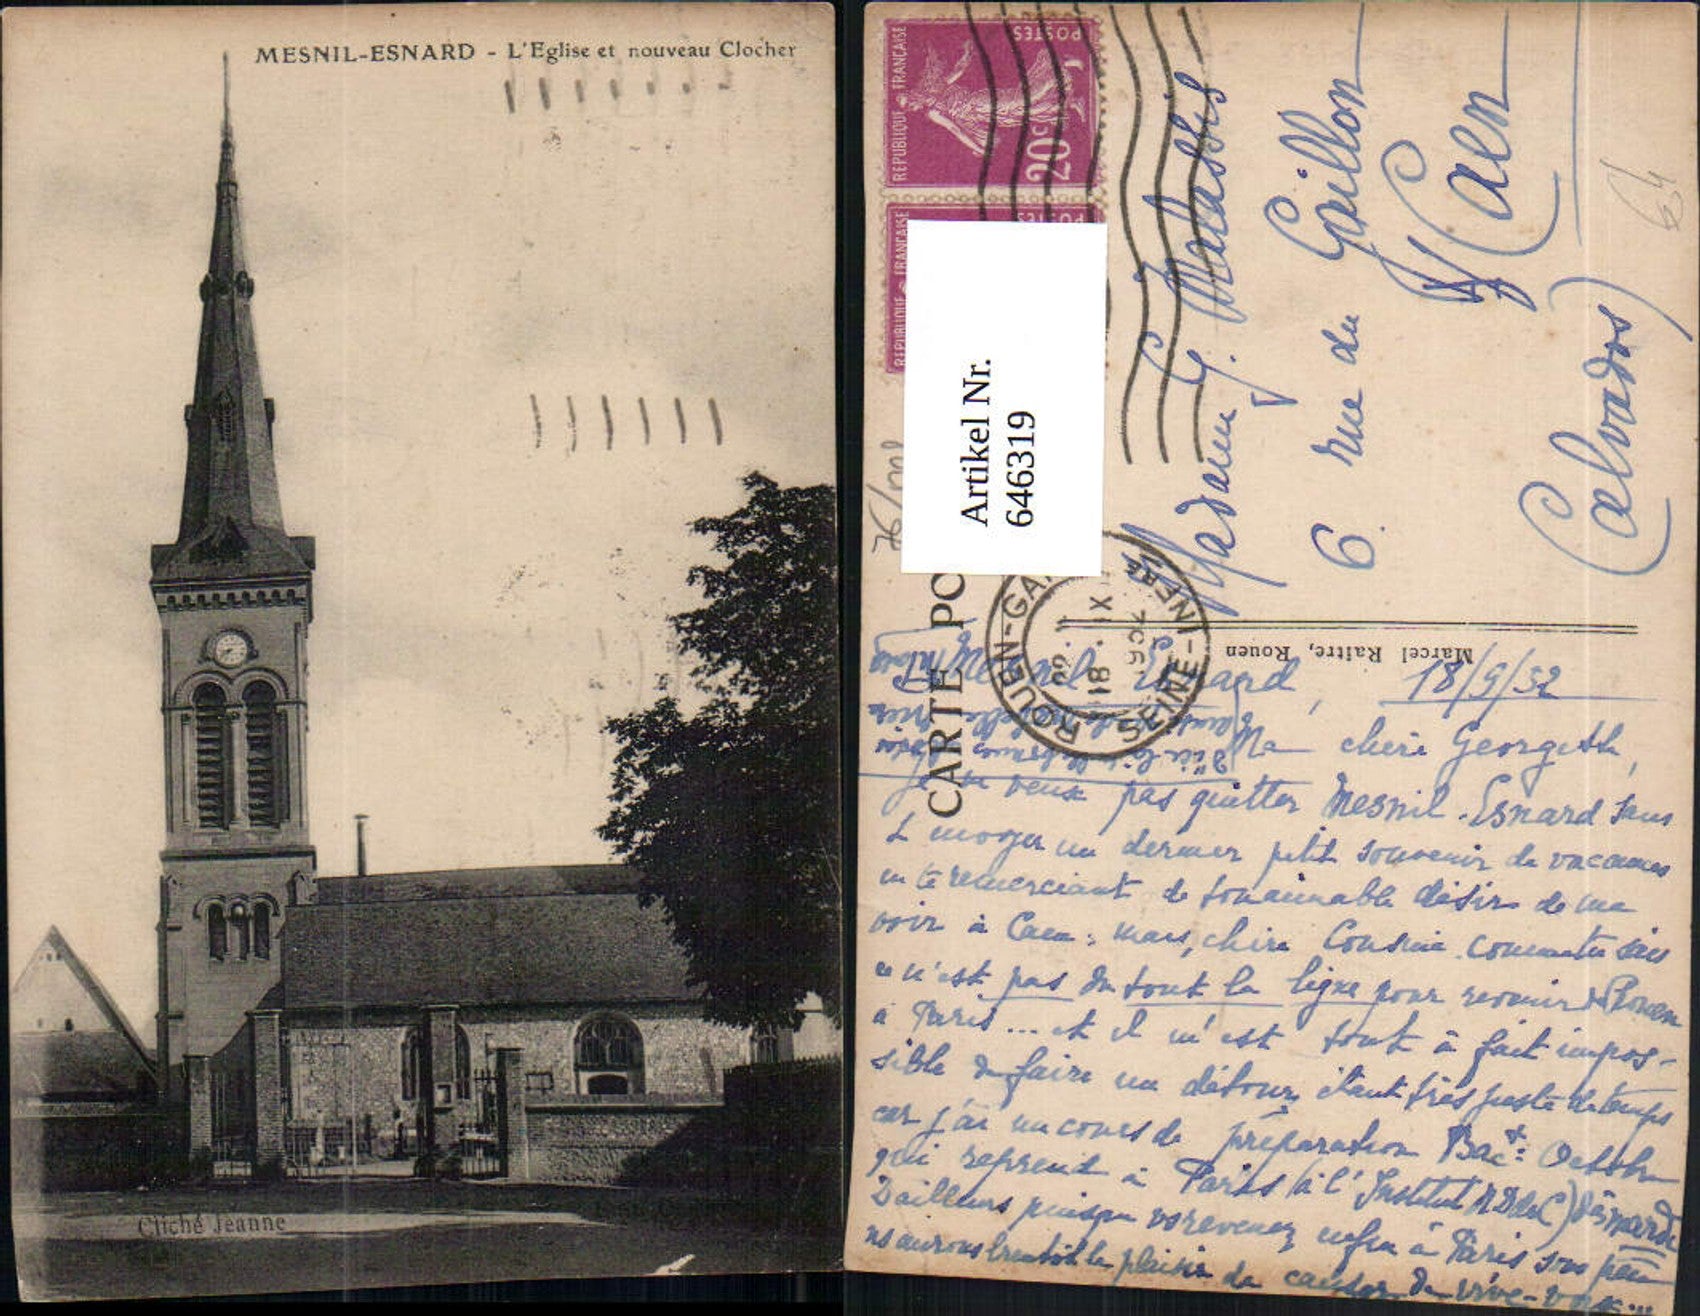 MESNIL-ESNARD - L'Eglise et nouveau Clocher
Cliché Jeanne
REPUBLIQUE FRANÇAISE
POSTES
20c
REPUBLIQUE FRANÇAISE
POSTES
Artikel Nr.
646319
76/
CARTE PO
ROUEN-GA
SEINE-INFRE
18
Marcel Raitre, Rouen
64
Madame G. Malassis
6 rue du Gaillon
Caen
(Calvados)
Mesnil Esnard, 18/9/32
Ma chère Georgette,
Je ne veux pas quitter Mesnil-Esnard sans
t'envoyer un dernier petit souvenir de vacances
en te remerciant de ton aimable désir de me
voir à Caen; mais, chère Cousine, comment
ce n'est pas du tout la ligne pour revenir de Rouen
à Paris... et il m'est tout à fait impos-
sible de faire un détour, étant très juste de temps
car j'ai un cours de préparation Bact. Octobre
qui reprend à Paris (à l'Institut N.D. ) dès mardi
D'ailleurs puisque vs revenez enfin à Paris sous peu
ns aurons bientôt le plaisir de causer de vive-voix